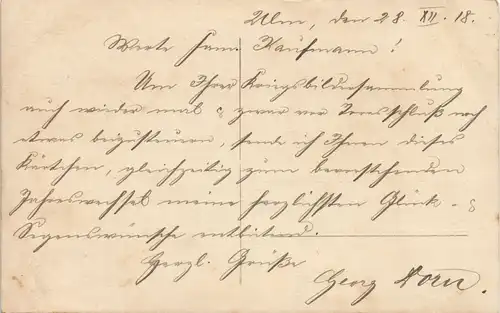 Ulm, den 28. XII. 18.
Werte Fam. Kaufmann!
Um Ihrer Kriegsbildersammlung
auch wieder mal & zwar vor Toresschluß noch
etwas beizusteuern, sende ich Ihnen dieses
Kärtchen, gleichzeitig zum bevorstehenden
Jahreswechsel meine herzlichsten Glück- &
Segenswünsche entbietend.
Herzl. Grüße
Georg Dorn.